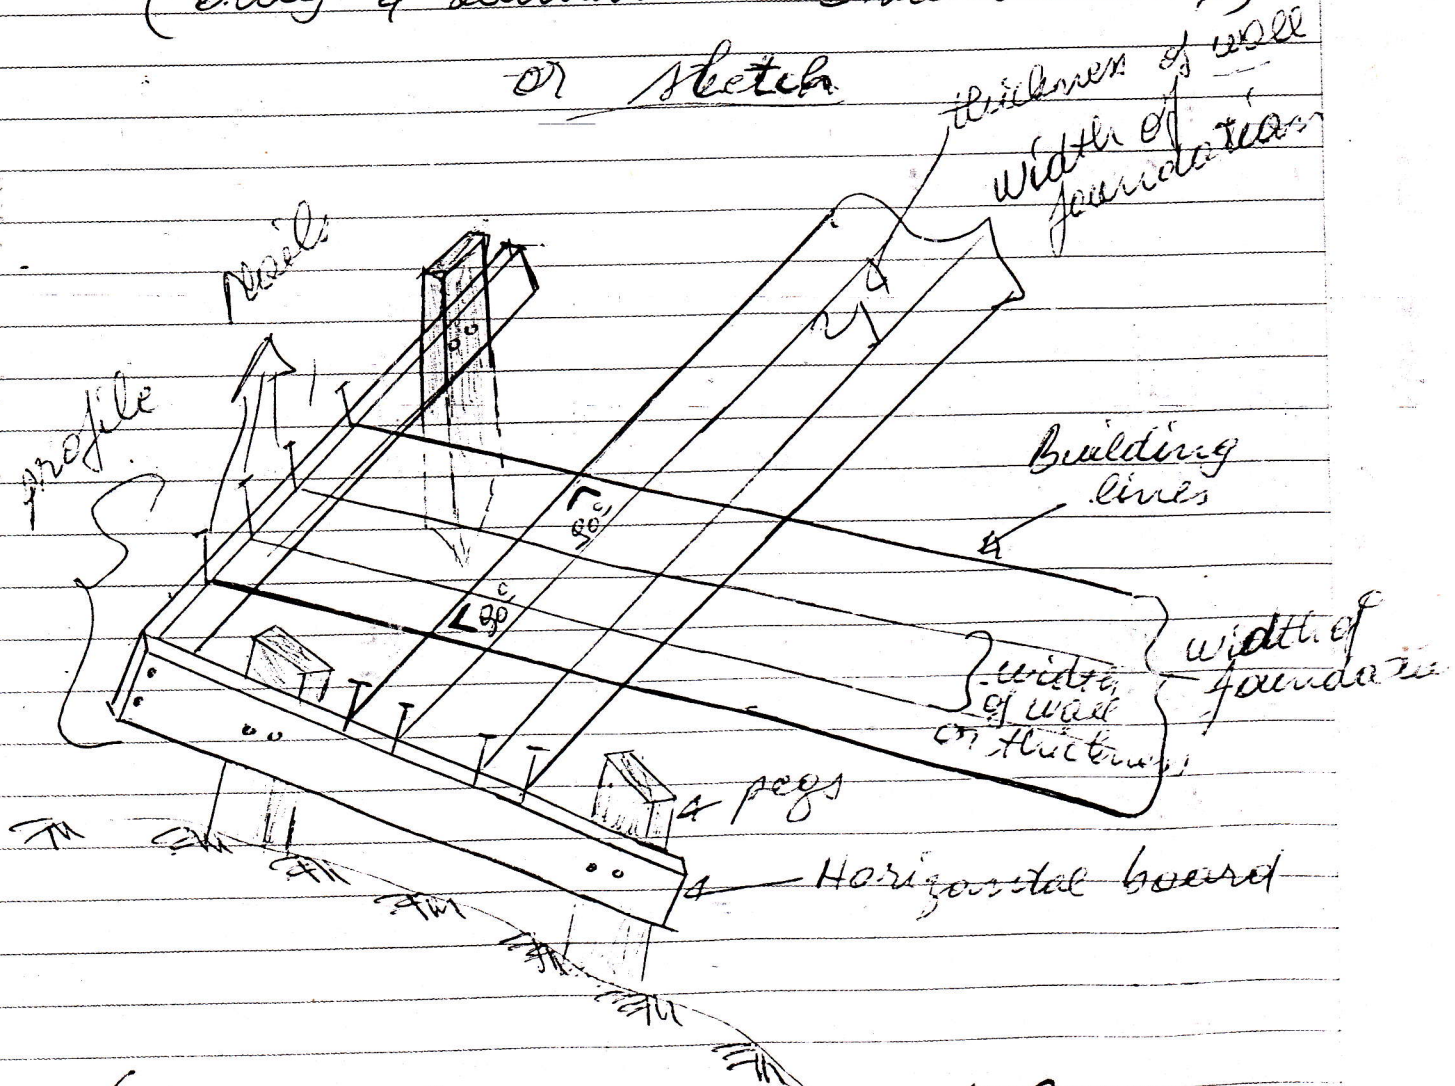 or sketch
thickness of wall
width of
foundation
Nails
profile
Building
lines
90°
90°
width of
width
of wall
or thickness
pegs
Horizontal board